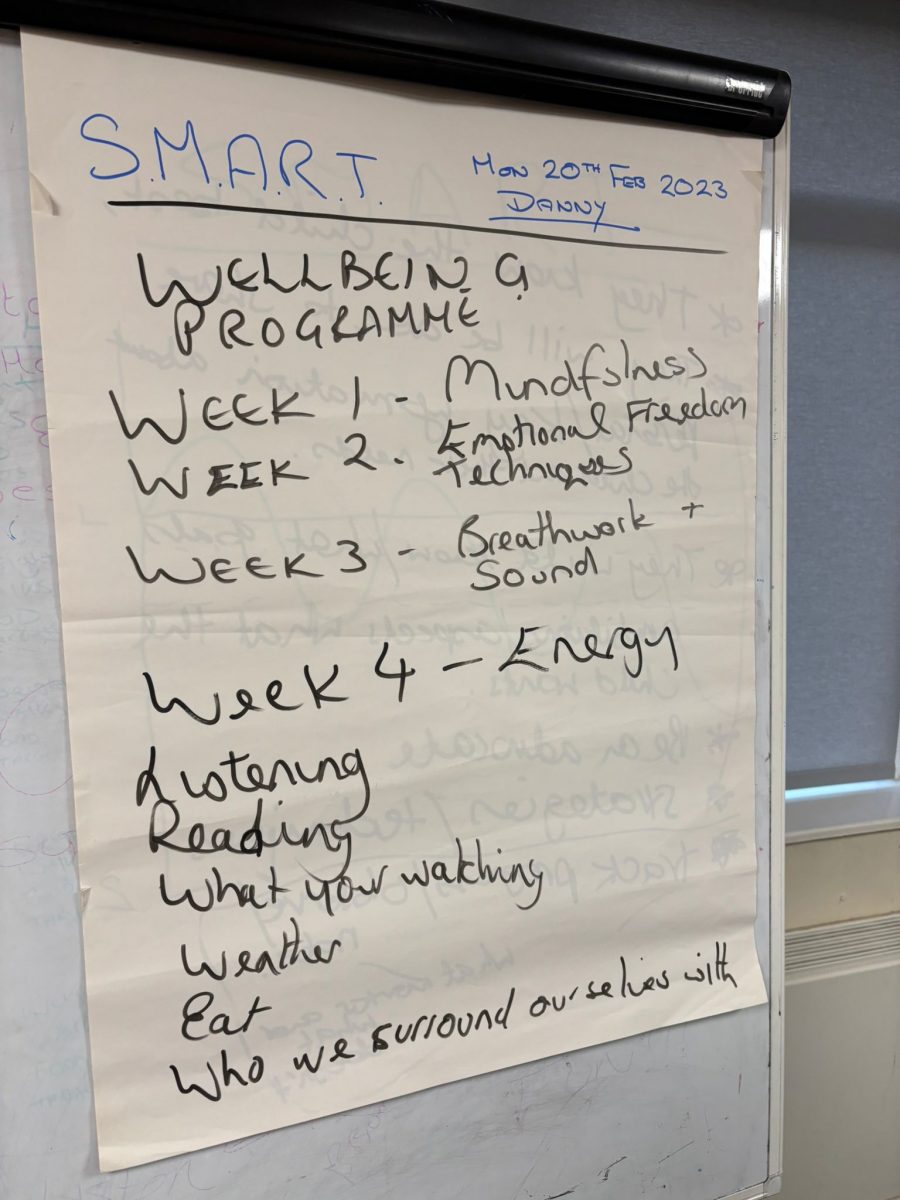 S.M.A.R.T.
MON 20TH FEB 2023
DANNY
WELLBEING
PROGRAMME
WEEK 1 - Mindfulness
WEEK 2. Emotional Freedom
Techniques
WEEK 3 - Breathwork +
Sound
Week 4 - Energy
Listening
Reading
What your watching
Weather
Eat
Who we surround ourselves with